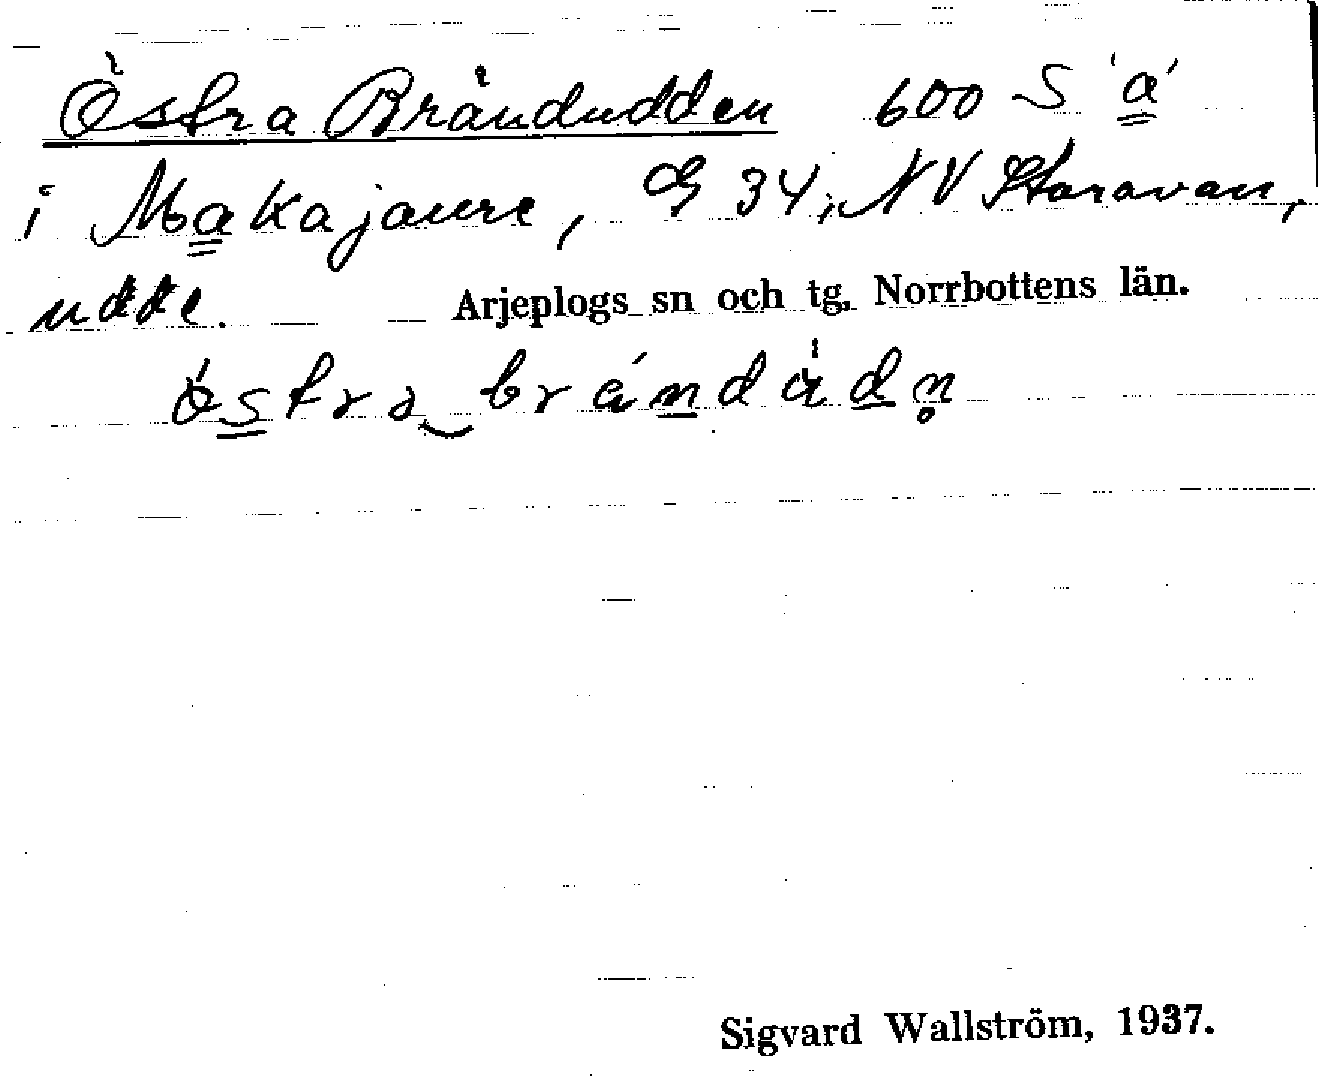 Östra Brändudden 600 S 'a'
i Makajaure, G 34, NV Storavan,
udde. Arjeplogs sn och tg. Norrbottens län.
Sigvard Wallström, 1937.